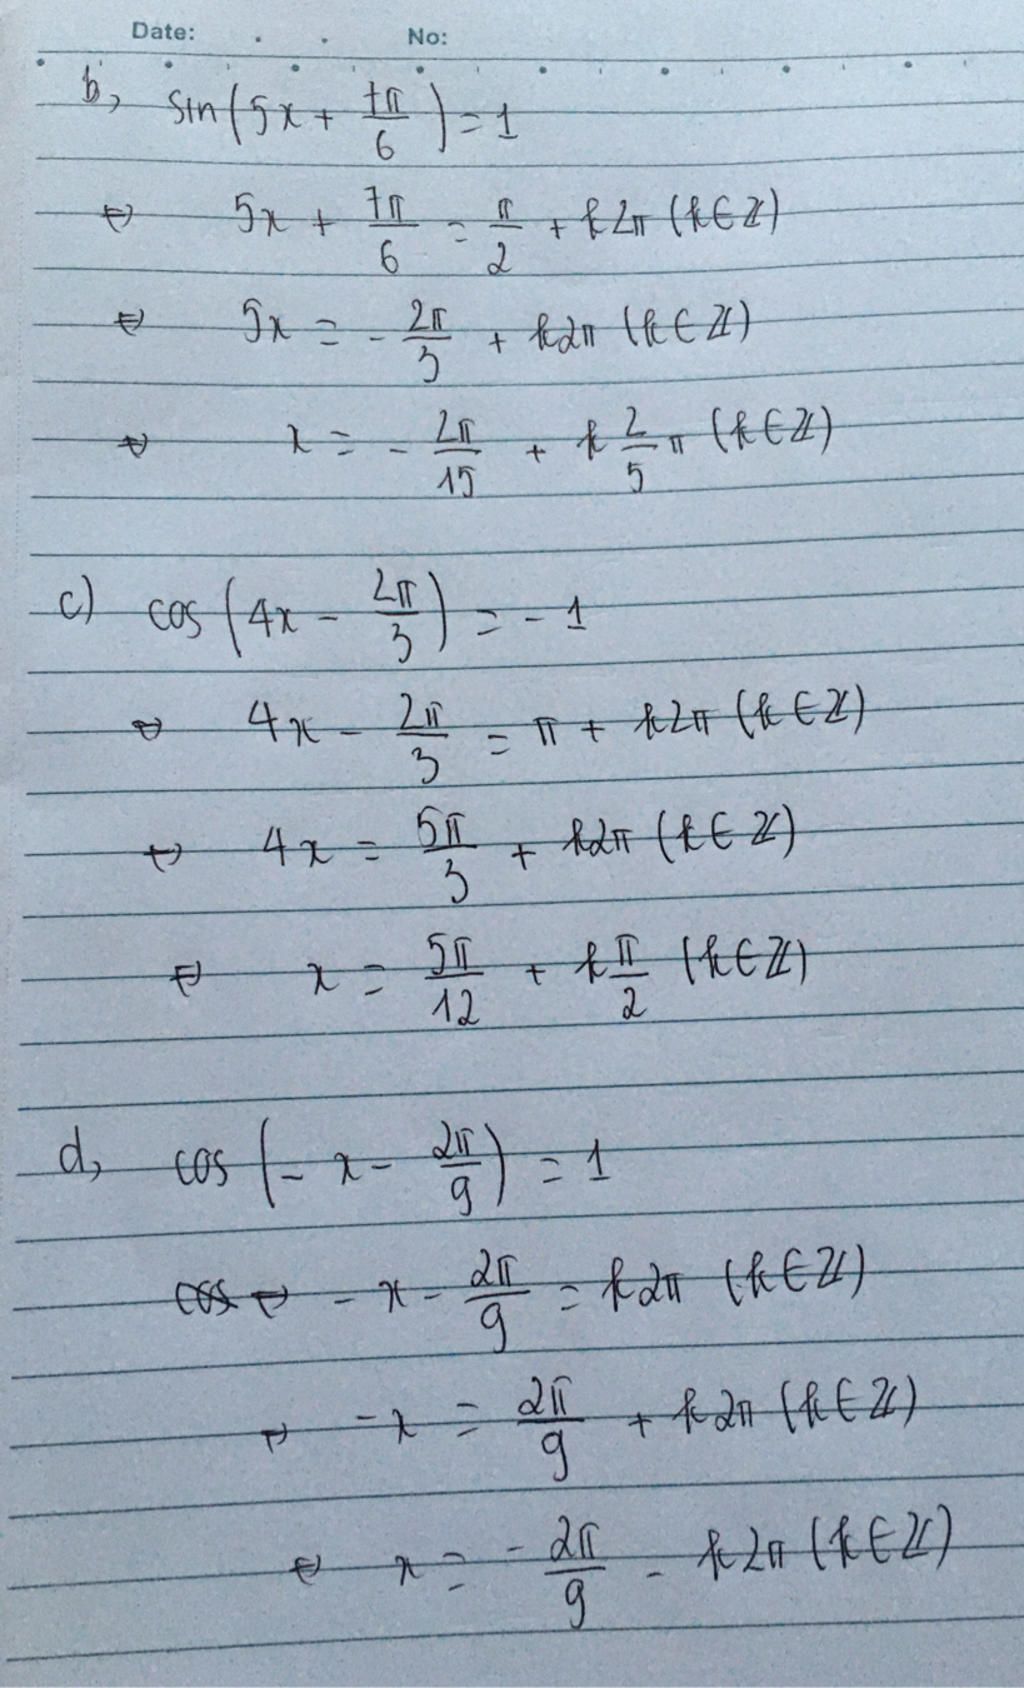 Date: No:
b, sin(5x + 7π/6) = 1
⇔ 5x + 7π/6 = π/2 + k2π (k∈Z)
⇔ 5x = - 2π/3 + k2π (k∈Z)
⇔ x = - 2π/15 + k 2/5 π (k∈Z)
c) cos(4x - 2π/3) = - 1
⇔ 4x - 2π/3 = π + k2π (k∈Z)
⇔ 4x = 5π/3 + k2π (k∈Z)
⇔ x = 5π/12 + k π/2 (k∈Z)
d, cos(- x - 2π/9) = 1
cos ⇔ - x - 2π/9 = k2π (k∈Z)
⇔ -x = 2π/9 + k2π (k∈Z)
⇔ x = - 2π/9 - k2π (k∈Z)